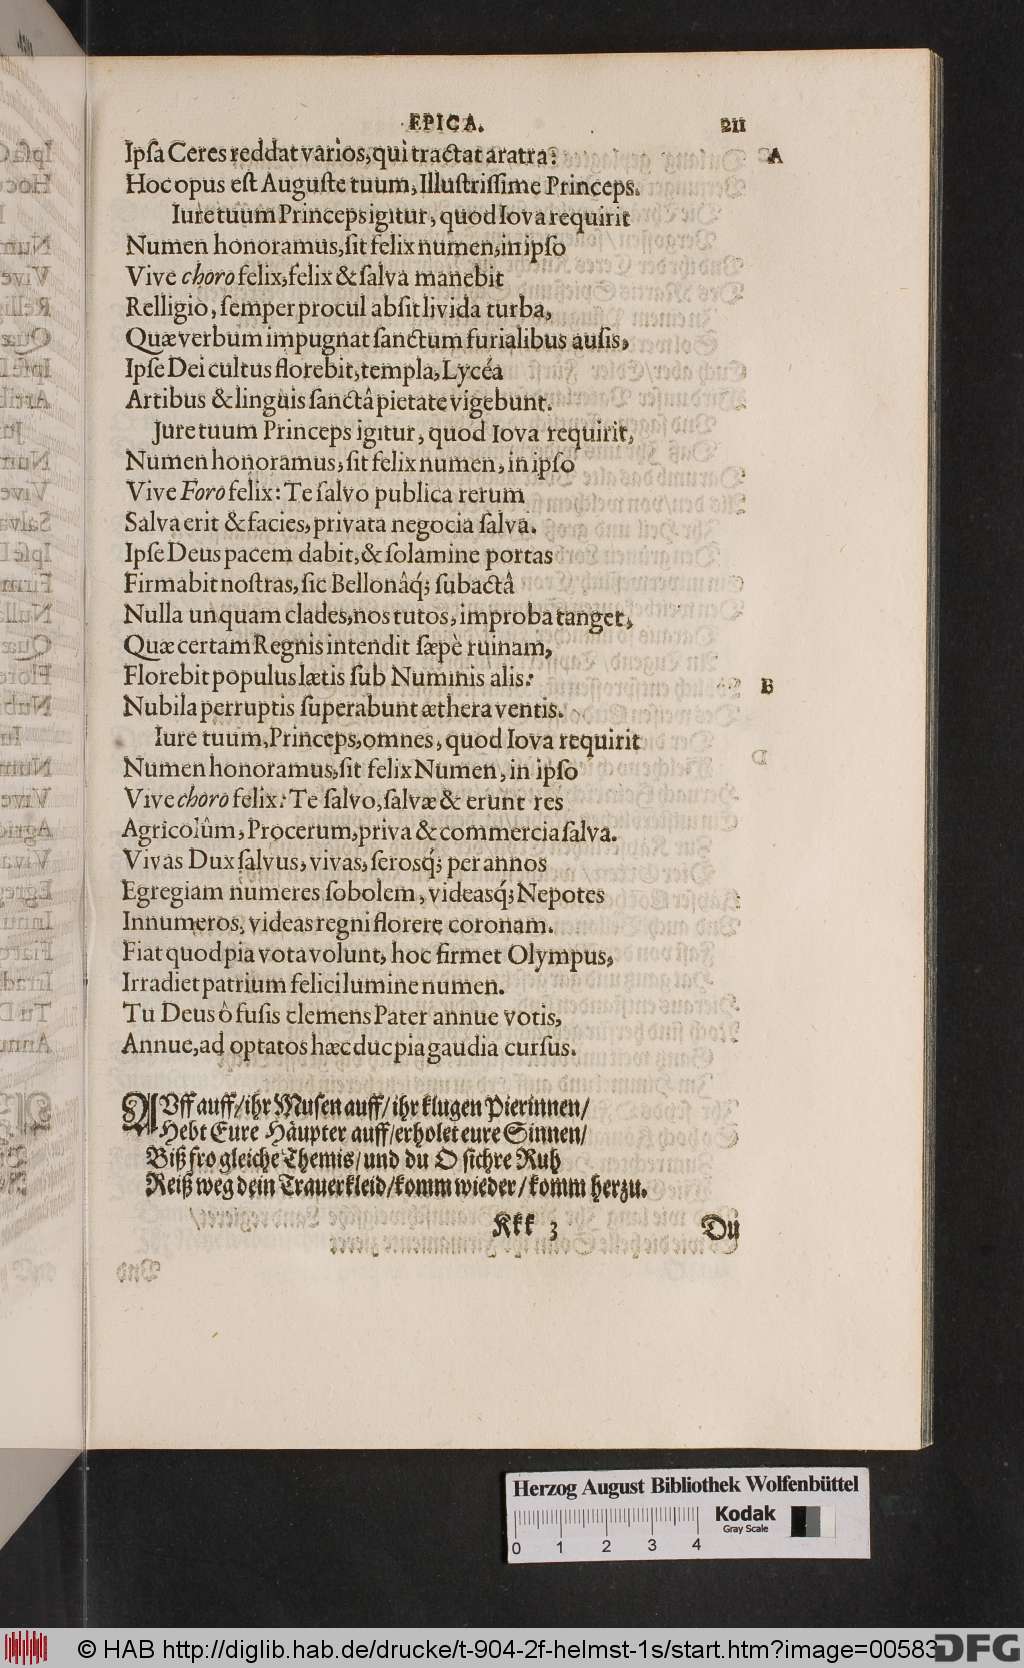 EPICA. 211
Ipſa Ceres reddat varios, qui tractat aratra: A
Hoc opus eſt Auguſte tuum, Illuſtriſſime Princeps.
Iure tuum Princeps igitur, quod Iova requirit
Numen honoramus, ſit felix numen, in ipſo
Vive choro felix, felix & ſalva manebit
Relligio, ſemper procul abſit livida turba,
Quæ verbum impugnat ſanctum furialibus auſis,
Ipſe Dei cultus florebit, templa, Lycéa
Artibus & linguis ſanctâ pietate vigebunt.
Jure tuum Princeps igitur, quod Iova requirit,
Numen honoramus, ſit felix numen, in ipſo
Vive Foro felix: Te ſalvo publica rerum
Salva erit & facies, privata negocia ſalva.
Ipſe Deus pacem dabit, & ſolamine portas
Firmabit noſtras, ſic Bellonâq́; ſubactâ
Nulla unquam clades, nos tutos, improba tanget,
Quæ certam Regnis intendit ſæpè ruinam,
Florebit populus lætis ſub Numinis alis: B
Nubila perruptis ſuperabunt æthera ventis.
Iure tuum, Princeps, omnes, quod Iova requirit
Numen honoramus, ſit felix Numen, in ipſo
Vive choro felix: Te ſalvo, ſalvæ & erunt res
Agricolûm, Procerum, priva & commercia ſalva.
Vivas Dux ſalvus, vivas, ſerosq́; per annos
Egregiam numeres ſobolem, videasq́; Nepotes
Innumeros, videas regni florere coronam.
Fiat quod pia vota volunt, hoc firmet Olympus,
Irradiet patrium felici lumine numen.
Tu Deus ô fuſis clemens Pater annue votis,
Annue, ad optatos hæc duc pia gaudia curſus.
AUff auff/ ihr Muſen auff/ ihr klugen Pierinnen/
Hebt Eure Häupter auff/ erholet eure Sinnen/
Biß fro gleiche Themis/ und du O ſichre Ruh
Reiß weg dein Trauerkleid/ komm wieder/ komm herzu.
Kkk 3 Du
Herzog August Bibliothek Wolfenbüttel
Kodak
Gray Scale
0 1 2 3 4
© HAB http://diglib.hab.de/drucke/t-904-2f-helmst-1s/start.htm?image=00583
DFG